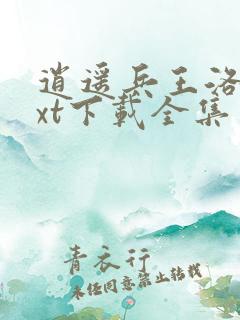 逍遥兵王洛
xt下载全集
青衣行
未经同意禁止转载